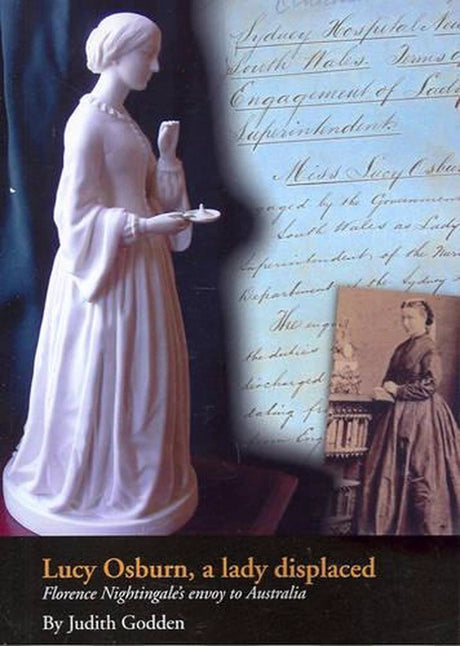 Sydney Hospital New
South Wales. Terms of
Engagement of Lady
Superintendent.
Miss Lucy Osbu
ngaged by the Governmen
South Wales as Lady
Superintendent of the Nur
Department of the Sydney
the duties
discharged
dating fr
from Eng
Lucy Osburn, a lady displaced
Florence Nightingale's envoy to Australia
By Judith Godden